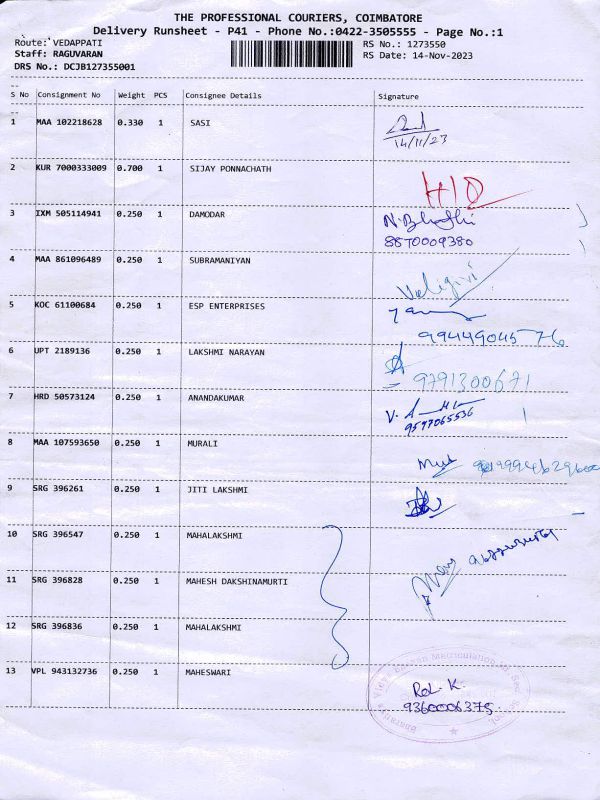 THE PROFESSIONAL COURIERS, COIMBATORE
Delivery Runsheet - P41 - Phone No.:0422-3505555 - Page No.:1
Route: VEDAPPATI RS No.: 1273550
Staff: RAGUVARAN RS Date: 14-Nov-2023
DRS No.: DCJB127355001
S No Consignment No Weight PCS Consignee Details Signature
1 MAA 102218628 0.330 1 SASI
14/11/23
2 KUR 7000333009 0.700 1 SIJAY PONNACHATH
H10
3 IXM 505114941 0.250 1 DAMODAR
8870009380
4 MAA 861096489 0.250 1 SUBRAMANIYAN
5 KOC 61100684 0.250 1 ESP ENTERPRISES
9944904576
6 UPT 2189136 0.250 1 LAKSHMI NARAYAN
9791300671
7 HRD 50573124 0.250 1 ANANDAKUMAR
9597065536
8 MAA 107593650 0.250 1 MURALI
9 SRG 396261 0.250 1 JITI LAKSHMI
10 SRG 396547 0.250 1 MAHALAKSHMI
11 SRG 396828 0.250 1 MAHESH DAKSHINAMURTI
12 SRG 396836 0.250 1 MAHALAKSHMI
13 VPL 943132736 0.250 1 MAHESWARI
9360006375